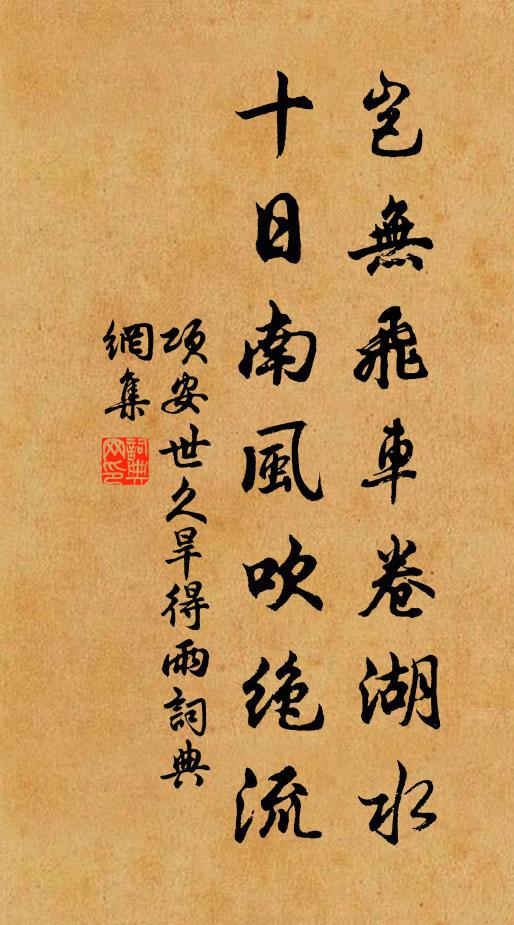 豈無飛車卷湖水
十日南風吹絶流
項安世久旱得雨詞典
網集
詞典
网印